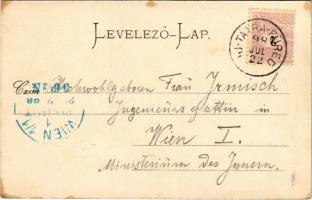 LEVELEZŐ-LAP.
Ó-TÁTRA-FÜRED
98
JUL
22
Czim Hochwohlgeboren Frau Irmisch
Ingenieurs gattin in
Wien I.
Ministerium des Innern.
WIEN 1/1